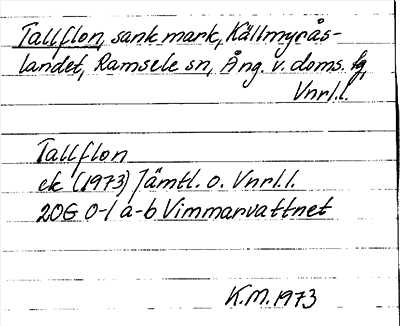 Tallflon, sank mark, Källmyrås-
landet, Ramsele sn, Ång. v. doms. fg,
Vnrl.l.
Tallflon
ek (1973) Jämtl. o. Vnrl.l.
20G 0-1 a-b Vimmarvattnet
K.M. 1973